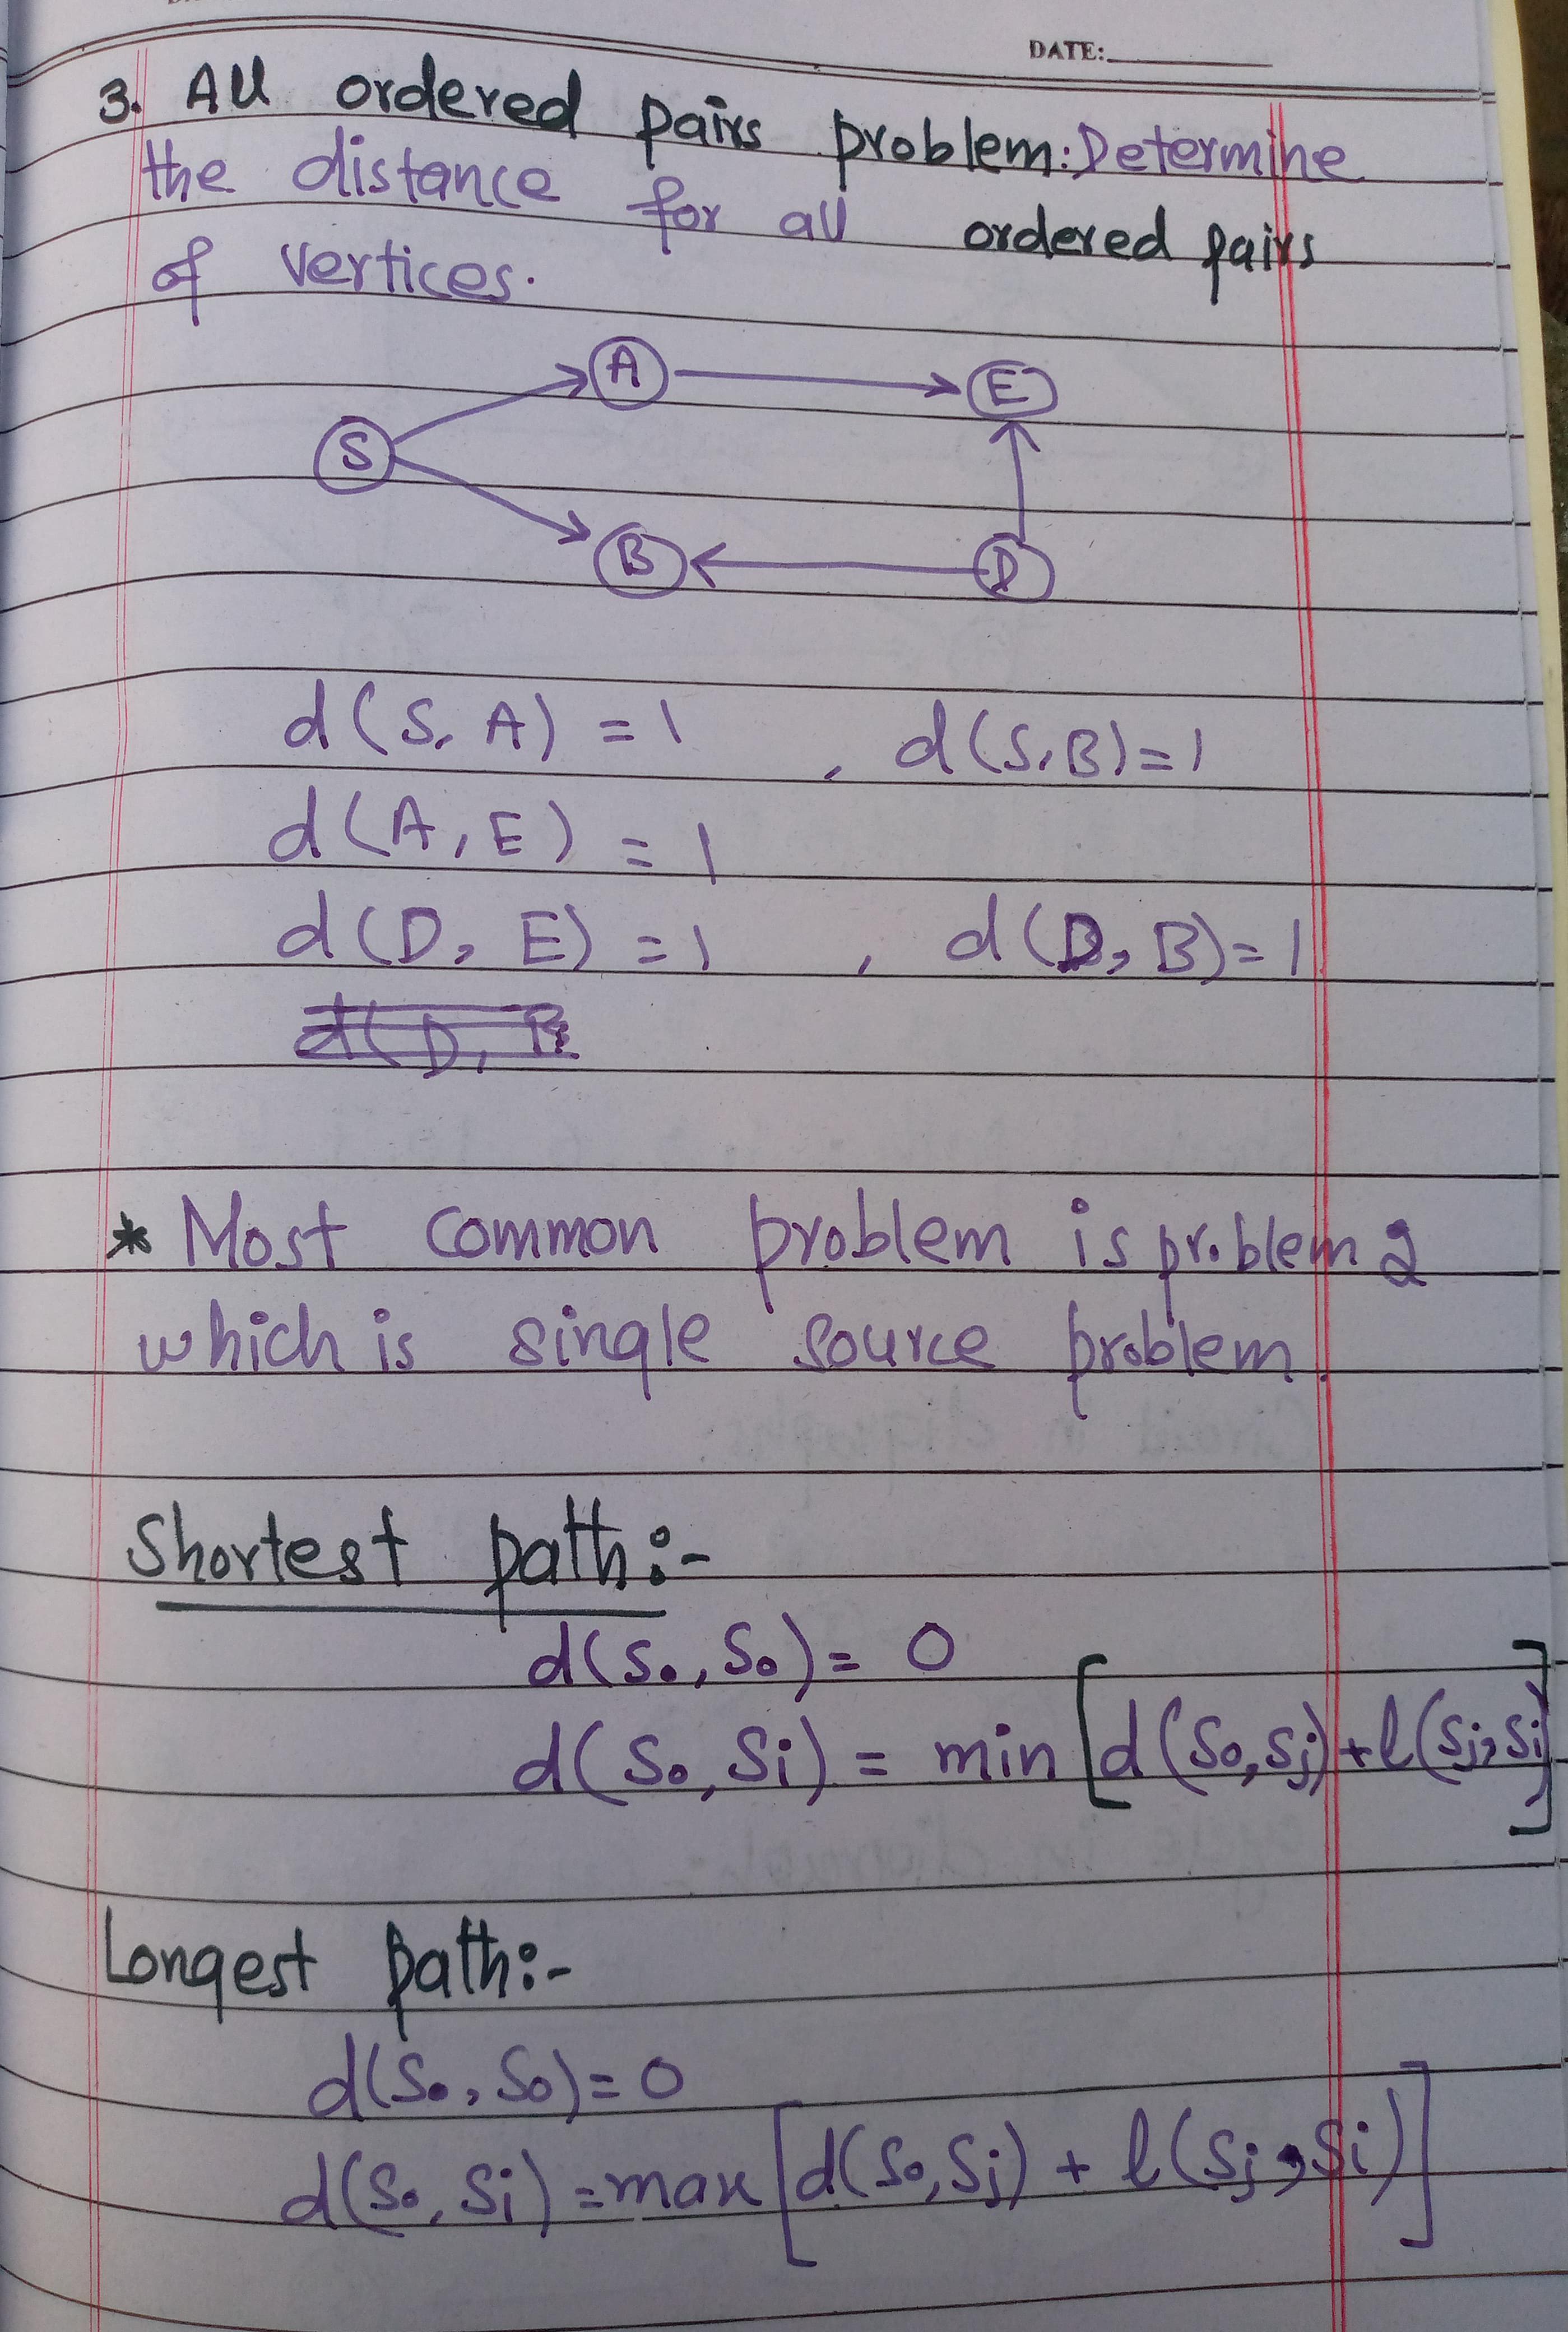 DATE:
3. All ordered pairs problem: Determine
the distance for all ordered pairs
of vertices.
A E
S
B D
d(S, A) = 1 , d(S, B) = 1
d(A, E) = 1
d(D, E) = 1 , d(D, B) = 1
d(D, B
* Most common problem is problem 2
which is single source problem.
Shortest path:-
d(S₀, S₀) = 0
d(S₀, Si) = min [d(S₀, Sj) + l(Sj, Si)]
Longest path:-
d(S₀, S₀) = 0
d(S₀, Si) = max [d(S₀, Sj) + l(Sj, Si)]